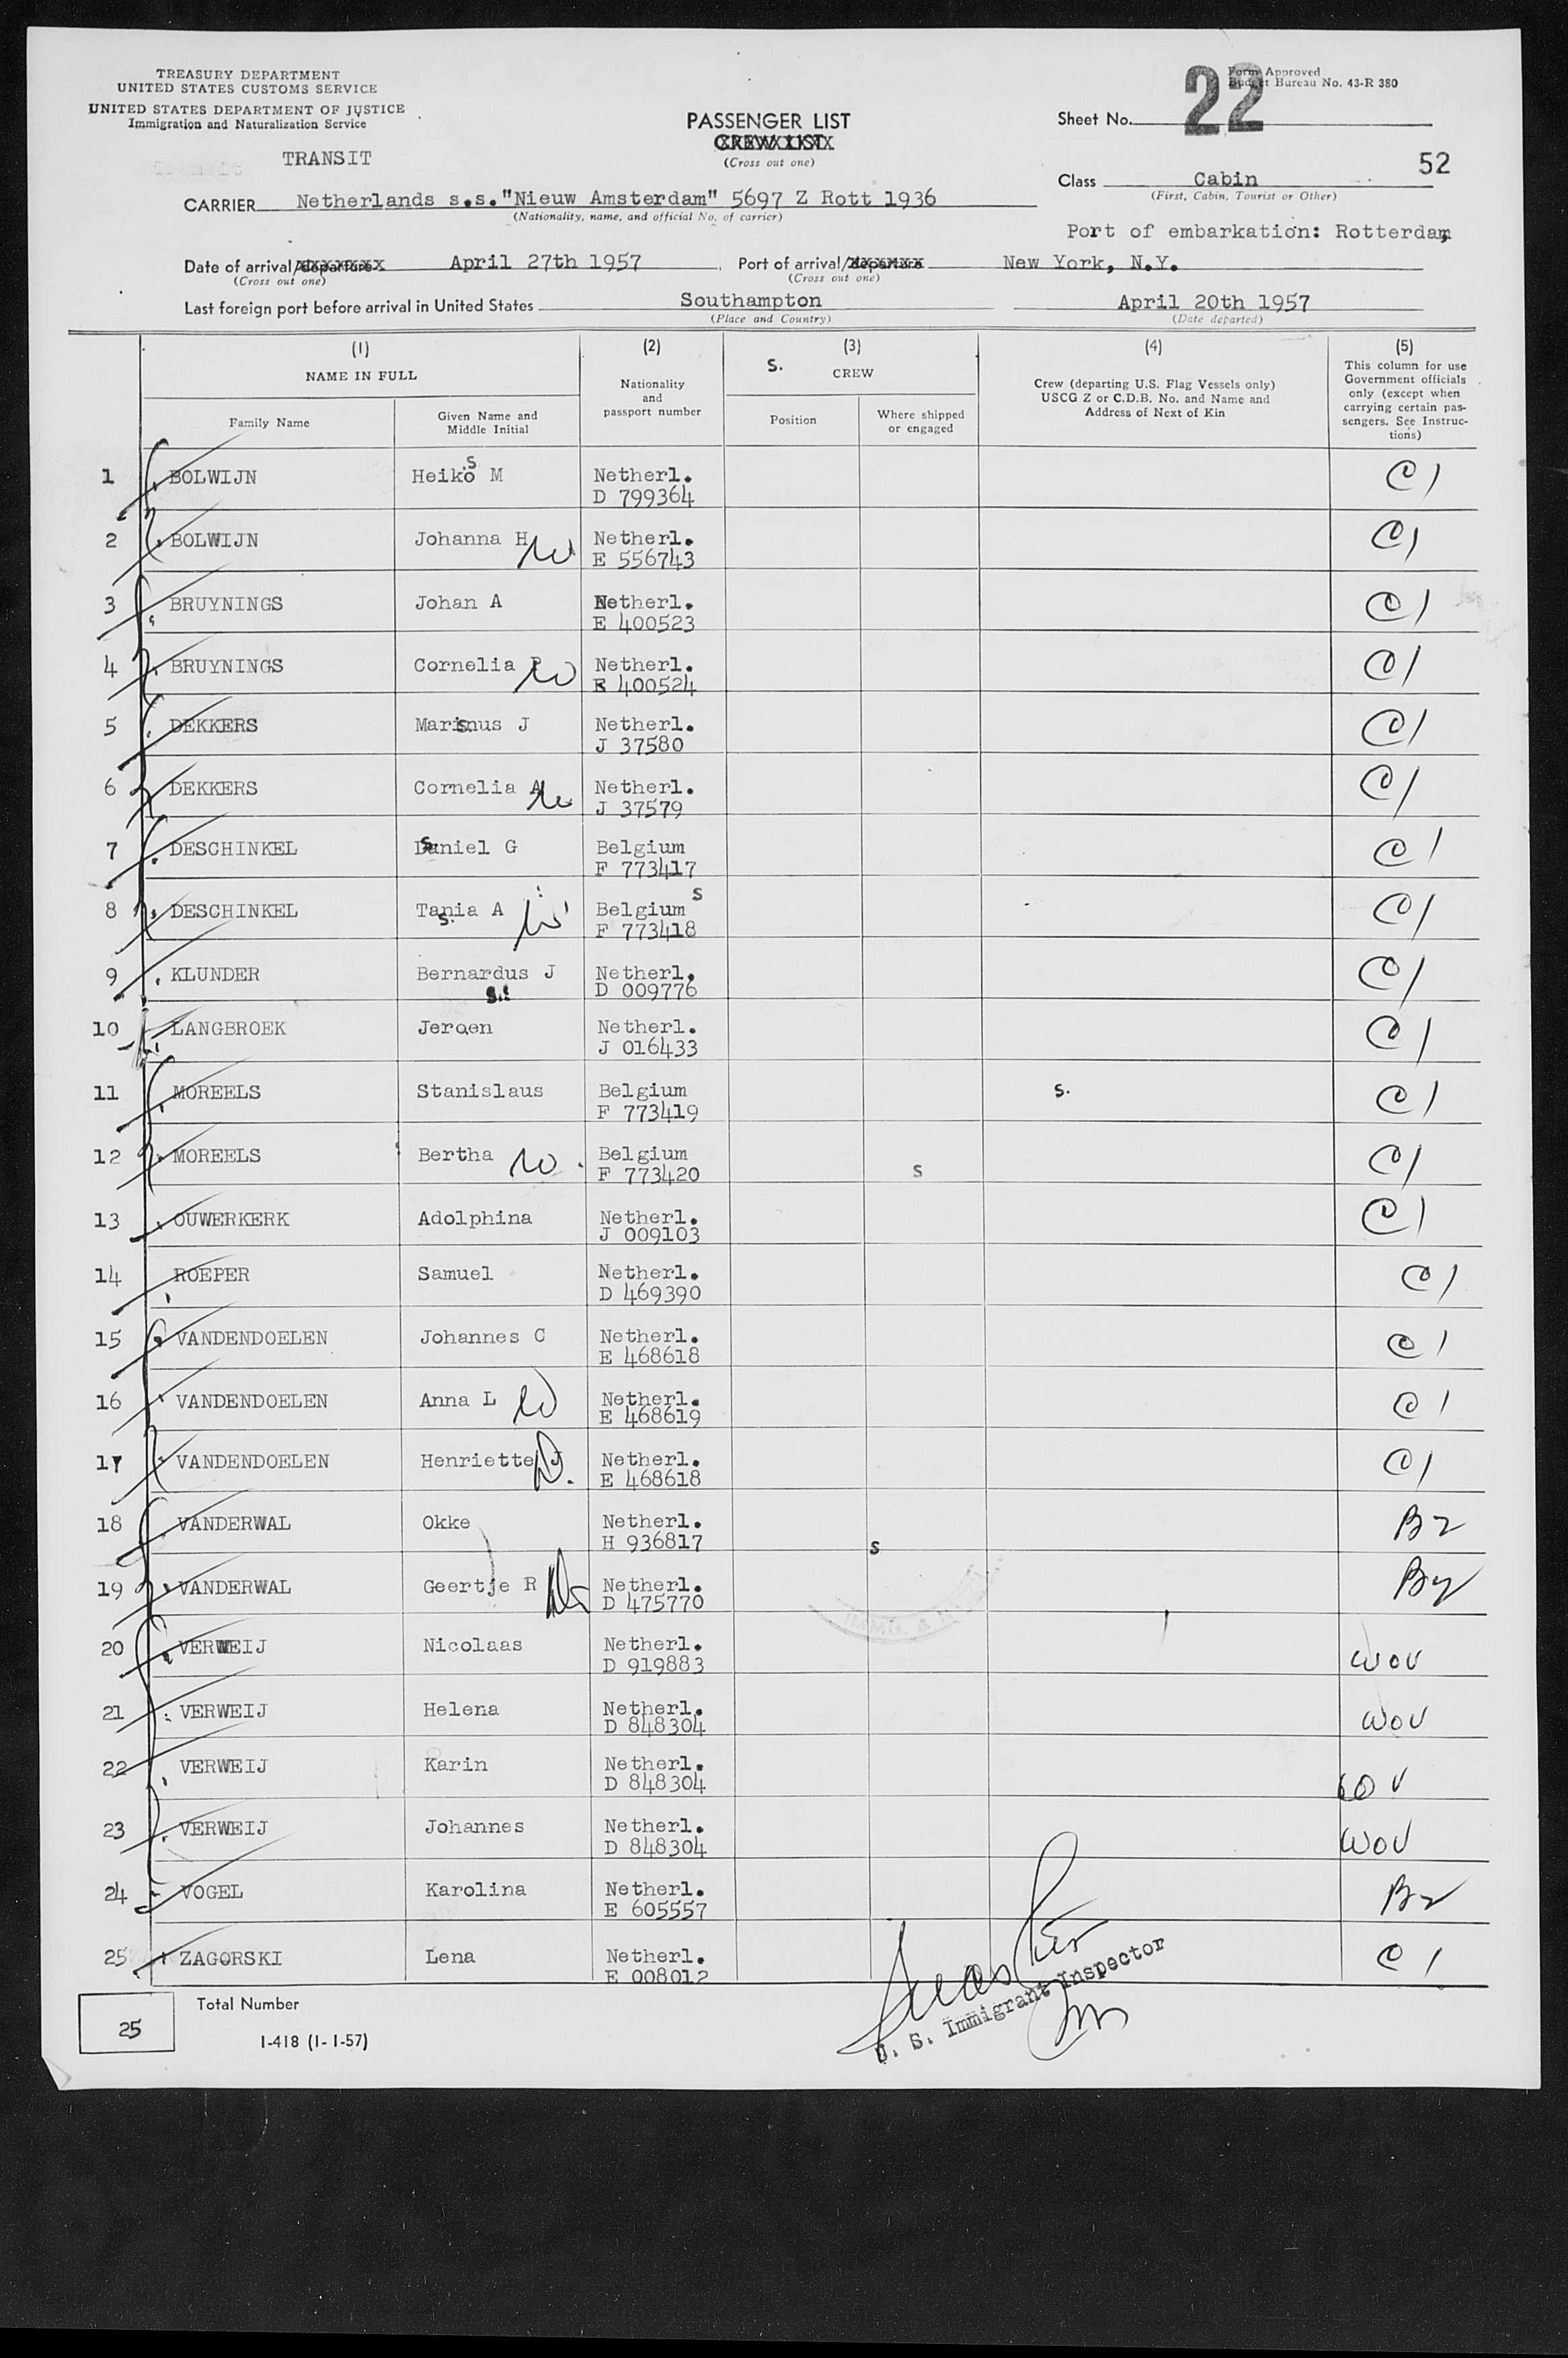 TREASURY DEPARTMENT
UNITED STATES CUSTOMS SERVICE
UNITED STATES DEPARTMENT OF JUSTICE
Immigration and Naturalization Service
TRANSIT
PASSENGER LIST
CREW LIST
(Cross out one)
Form Approved
Budget Bureau No. 43-R 380
Sheet No. 22
52
Class Cabin
(First, Cabin, Tourist or Other)
CARRIER Netherlands s.s."Nieuw Amsterdam" 5697 Z Rott 1936
(Nationality, name, and official No. of carrier)
Port of embarkation: Rotterdam
Date of arrival/departure April 27th 1957 Port of arrival/departure New York, N.Y.
(Cross out one) (Cross out one)
Last foreign port before arrival in United States Southampton April 20th 1957
(Place and Country) (Date departed)
(1) (2) (3) (4) (5)
NAME IN FULL
Family Name
Given Name and
Middle Initial
Nationality
and
passport number
S.
CREW
Position
Where shipped
or engaged
Crew (departing U.S. Flag Vessels only)
USCG Z or C.D.B. No. and Name and
Address of Next of Kin
This column for use
Government officials
only (except when
carrying certain pas-
sengers. See Instruc-
tions)
1 BOLWIJN Heiko M Netherl. C1
D 799364
2 BOLWIJN Johanna H W Netherl. C1
E 556743
3 BRUYNINGS Johan A Netherl. C1
E 400523
4 BRUYNINGS Cornelia W Netherl. C1
E 400524
5 DEKKERS Marinus J Netherl. C1
J 37580
6 DEKKERS Cornelia A W Netherl. C1
J 37579
7 DESCHINKEL Daniel G Belgium C1
F 773417
8 DESCHINKEL Tania A W Belgium S C1
F 773418
9 KLUNDER Bernardus J Netherl. C1
s. D 009776
10 LANGBROEK Jeroen Netherl. C1
J 016433
11 MOREELS Stanislaus Belgium s. C1
F 773419
12 MOREELS Bertha W Belgium C1
F 773420 s
13 OUWERKERK Adolphina Netherl. C1
J 009103
14 ROEPER Samuel Netherl. C1
D 469390
15 VANDENDOELEN Johannes C Netherl. C1
E 468618
16 VANDENDOELEN Anna L W Netherl. C1
E 468619
17 VANDENDOELEN Henriette J D. Netherl. C1
E 468618
18 VANDERWAL Okke Netherl. B2
H 936817 s
19 VANDERWAL Geertje R W Netherl. B2
D 475770
IMMG. &
20 VERWEIJ Nicolaas Netherl. WOV
D 919883
21 VERWEIJ Helena Netherl. WOV
D 848304
22 VERWEIJ Karin Netherl. WOV
D 848304
23 VERWEIJ Johannes Netherl. WOV
D 848304
24 VOGEL Karolina Netherl. B2
E 605557
25 ZAGORSKI Lena Netherl. C1
E 008012
25
Total Number
I-418 (1-1-57)
U. S. Immigrant Inspector